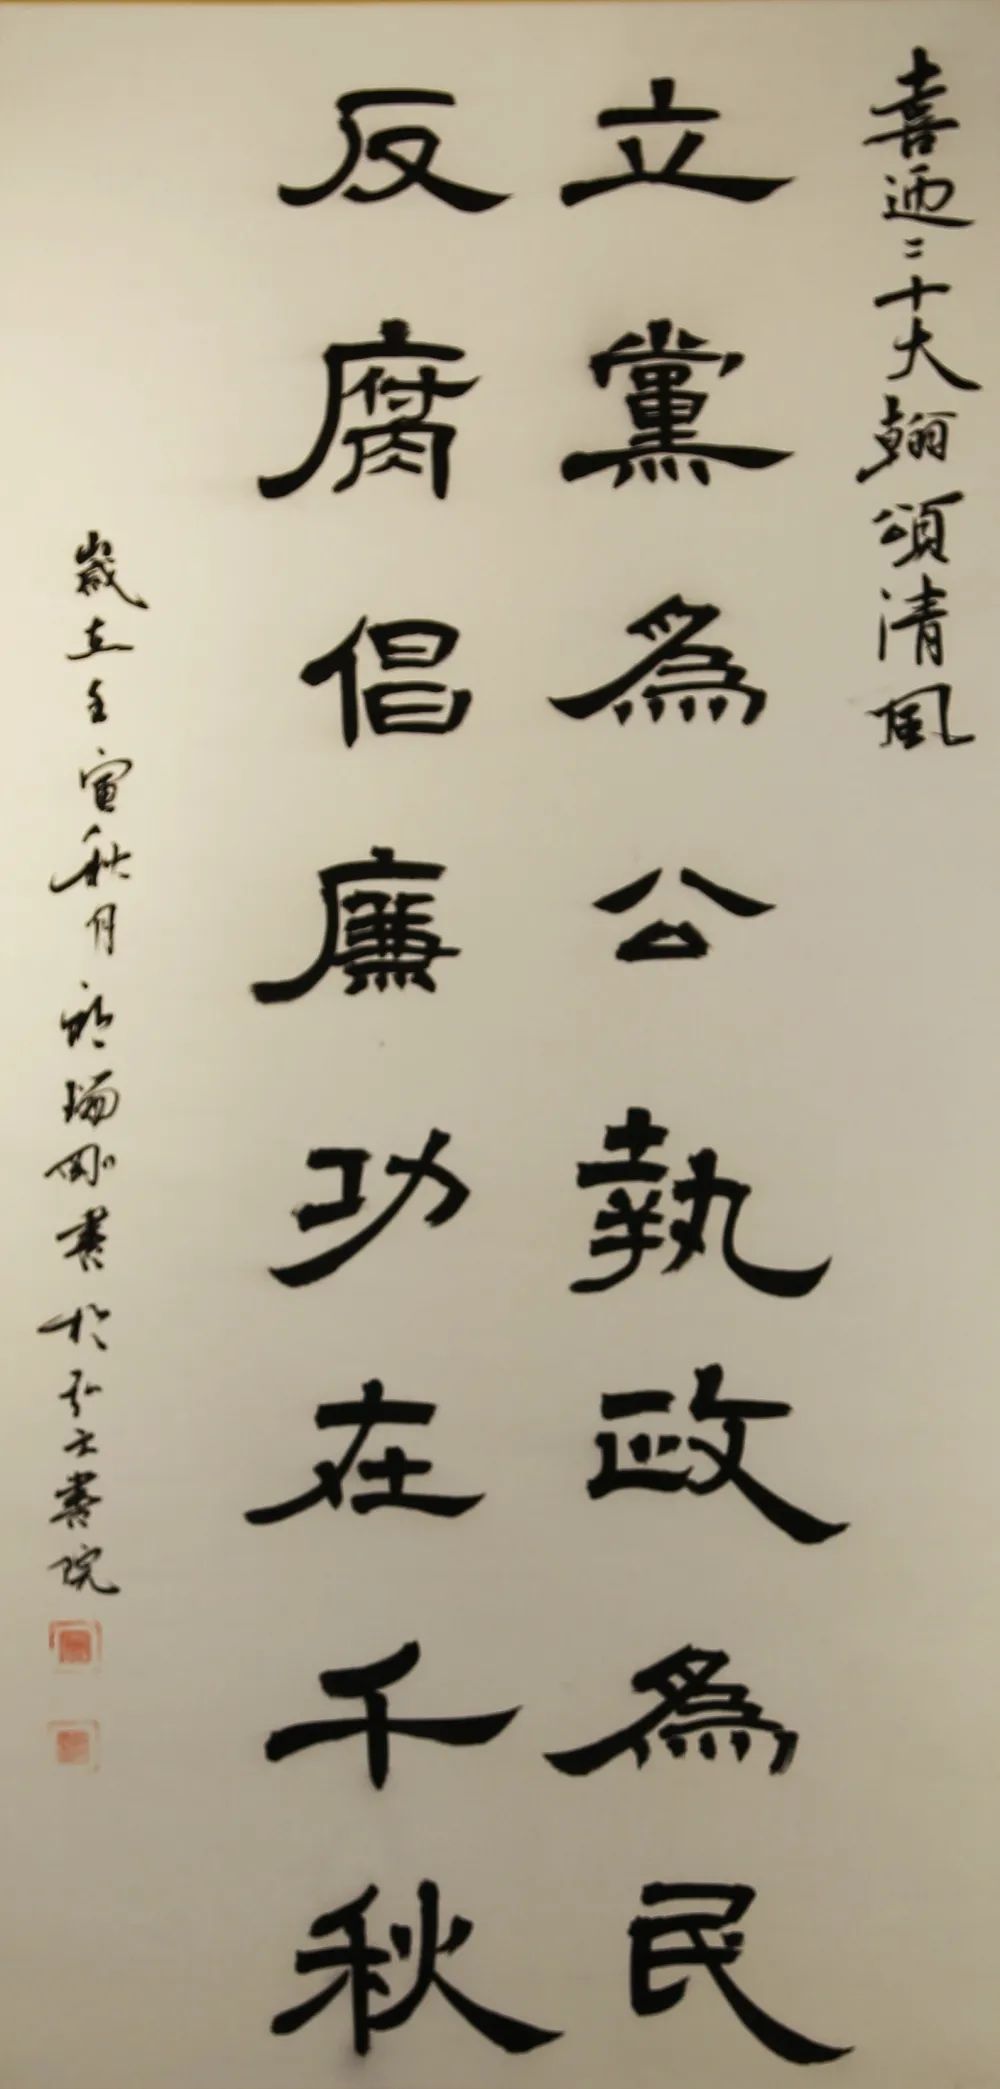 喜迎二十大翰頌清風
立黨為公執政為民
反腐倡廉功在千秋
歲在壬寅秋月 瑞剛書於弘文書院